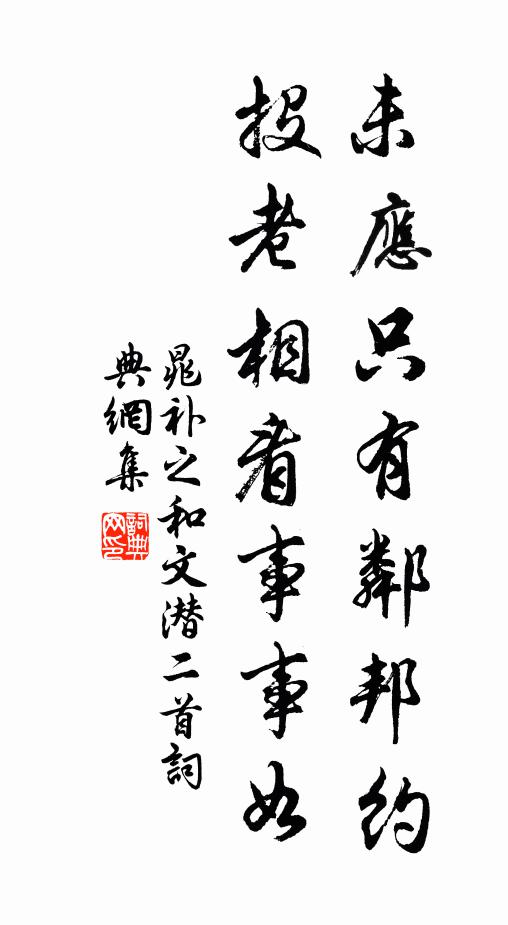 未應只有鄰邦約
投老相看事事如
晁补之和文潜二首詞
典網集
詞典網印